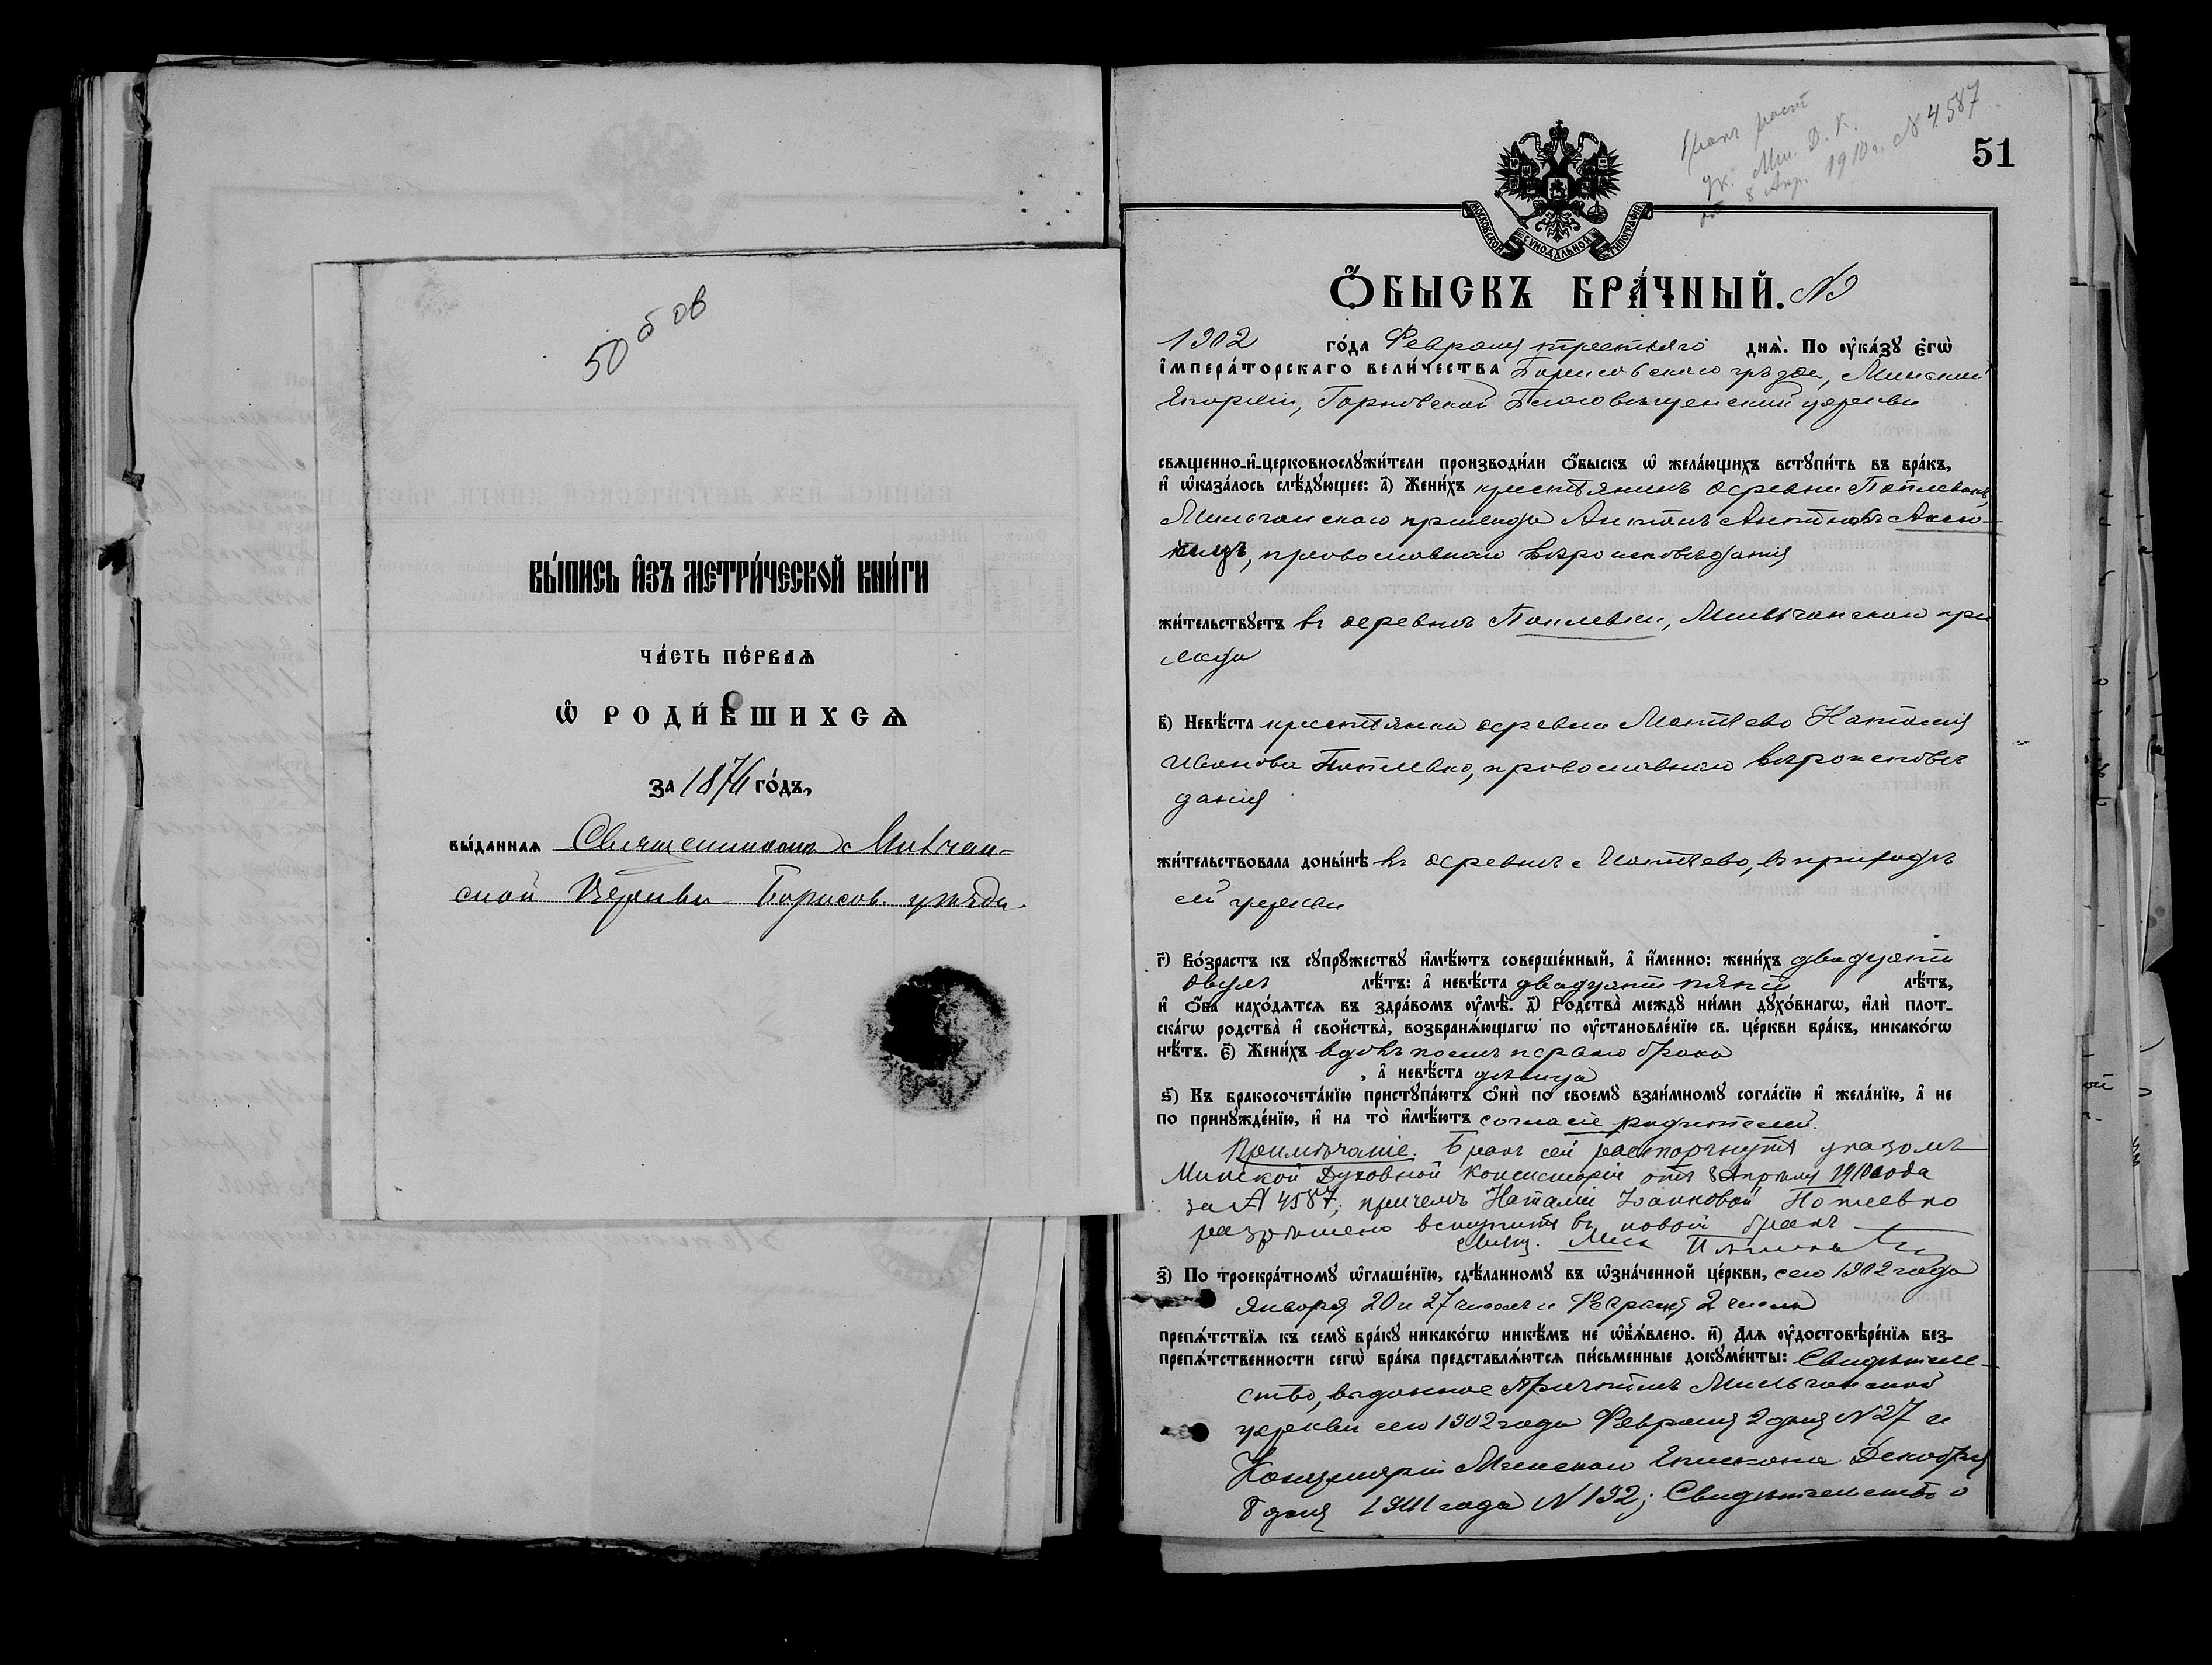 50 б об
ВЫ́ПИСЬ И҆ЗЪ МЕТРИ́ЧЕСКОЙ КНИ́ГИ
ЧА́СТЬ ПЕ́РВАѦ
Ѡ҆ РОДИ́ВШИХСѦ
ЗА 1876 ГО́ДЪ,
вы́даннаѧ Священникомъ Мильчан-
ской Церкви Борисов. уѣзда.
бракъ раст
ук. Мин. Д. К.
от 8 Апр. 1910 г. № 4587
51
МОСКОВСКОЙ СѴНОДАЛЬНОЙ ТИПОГРАФІИ
Ѻ҆БЫСКЪ БРА́ЧНЫЙ. №
1902 го́да Февраля третьяго днѧ̀. По ᲂу҆ка́зꙋ є҆гѡ̀
і҆мпера́торскаго вели́чества Борисовскаго уѣзда, Минской
Епархіи, Благовѣщенской церкви
свѧщенно-и҆-церковнослꙋжи́тели производи́ли ѻ҆́быскъ ѡ҆ жела́ющихъ встꙋпи́ть въ бра́къ,
и҆ ѡ҆каза́лось слѣ́дꙋющее: а҃) Жени́хъ крестьянинъ деревни
Мильчанскаго прихода Антонъ Антоновъ Аксю-
православнаго вѣроисповѣданія
жи́тельствꙋетъ въ деревнѣ Поплевки, Мильчанскаго при
хода
в҃) Невѣ́ста крестьянка деревни Наталія
Иванова православнаго вѣроисповѣ
данія
жи́тельствовала доны́нѣ въ деревнѣ въ приходѣ
сей церкви
г҃) Во́зрастъ къ сꙋпрꙋ́жествꙋ и҆мѣ́ютъ соверше́нный, а҆ и҆́менно: жени́хъ двадцати
двухъ лѣ́тъ: а҆ невѣ́ста двадцати пяти лѣ́тъ,
и҆ ѻ҆́ба нахо́дѧтсѧ въ здра́вомъ ᲂу҆мѣ̀. д҃) Родства̀ междꙋ ни́ми дꙋхо́внагѡ, и҆лѝ плот-
ска́гѡ родства̀ и҆ свойства̀, возбранѧ́ющагѡ по ᲂу҆становле́нїю св. це́ркви бра́къ, никако́гѡ
нѣ́тъ. є҃) Жени́хъ вдовъ послѣ перваго брака
, а҆ невѣ́ста дѣвица
ѕ҃) Къ бракосочета́нїю пристꙋпа́ютъ ѻ҆нѝ по своемꙋ̀ взаи́мномꙋ согла́сїю и҆ жела́нїю, а҆ не
по принꙋжде́нїю, и҆ на то̀ и҆мѣ́ютъ согласіе родителей.
Примѣчаніе. Бракъ сей расторгнутъ указомъ
Минской Духовной Консисторіи отъ 8 Апрѣля 1910 года
за № 4587, причемъ Наталіи Ивановой Поплевко
разрѣшено вступить въ новый бракъ
Свящ.
з҃) По троекра́тномꙋ ѡ҆глаше́нїю, сдѣ́ланномꙋ въ ѡ҆зна́ченной це́ркви, сего 1902 года
Января 20 и 27 чиселъ и Февраля 2 числа
препѧ́тствїѧ къ семꙋ̀ бра́кꙋ никако́гѡ никѣ́мъ не ѡ҆б̾ѧ́влено. и҃) Длѧ ᲂу҆достовѣре́нїѧ без-
препѧ́тственности сегѡ̀ бра́ка представлѧ́ютсѧ пи́сьменные докꙋме́нты: Свидѣтель-
ство, выданное причтомъ Мильчанской
церкви сего 1902 года Февраля 2 дня № 27 и
Канцеляріи Минскаго Епископа Декабря
8 дня года № 192; Свидѣтельство о